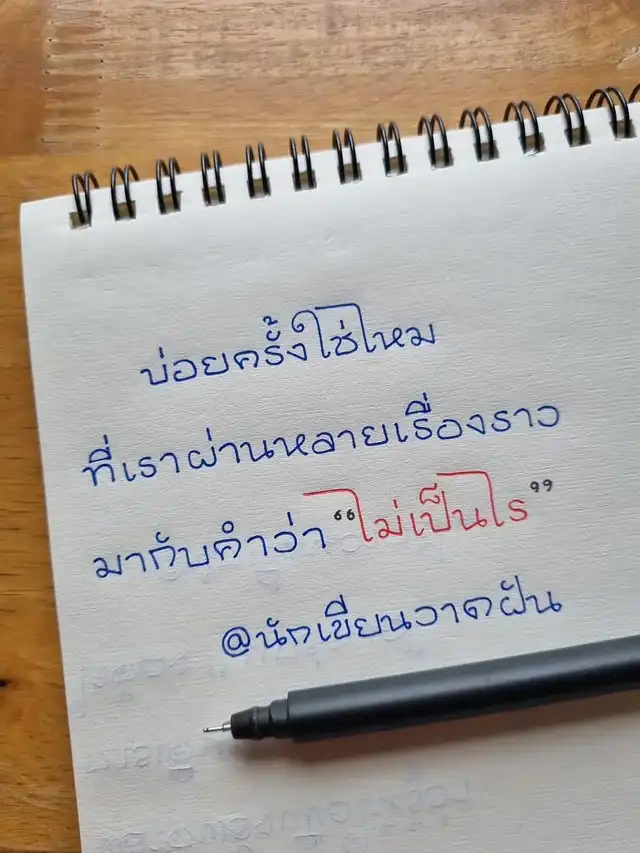 บ่อยครั้งใช่ไหม
ที่เราผ่านหลายเรื่องราว
มากับคำว่า “ไม่เป็นไร”
@นักเขียนวาดฝัน